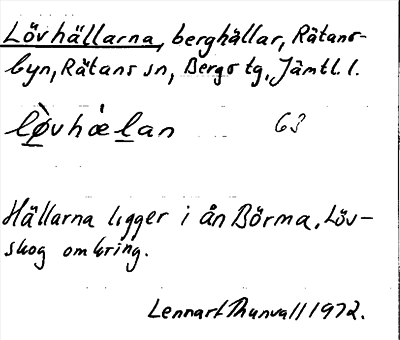 Lövhällarna, berghällar, Rätans-
byn, Rätans sn, Bergs tg, Jämtl. l.
lø̀vhæ̀lan 63
Hällarna ligger i ån Börma. Löv-
skog omkring.
Lennart Thunvall 1972.